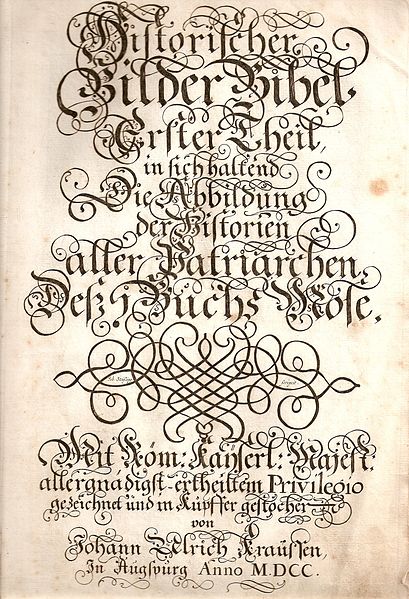 Historischer
Bilder Bibel.
Erster Theil,
in sich haltend
Die Abbildung
der Historien
aller Patriarchen,
Deß 1 Buchs Mose.
Mit Röm: Kaÿserl: Majest:
allergnädigst-ertheiltem Privilegio
gezeichnet und in Kupffer gestochen
von
Johann Ulrich Kraussen,
In Augspurg Anno M.DCC.